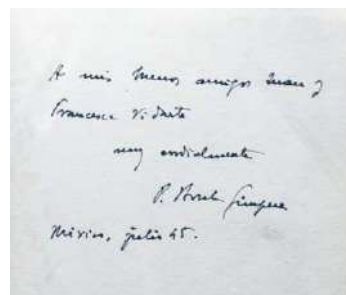 A mis buenos amigos Juan y
Francesca Vidarte
muy cordialmente
P. Bosch Gimpera
México, julio 45.